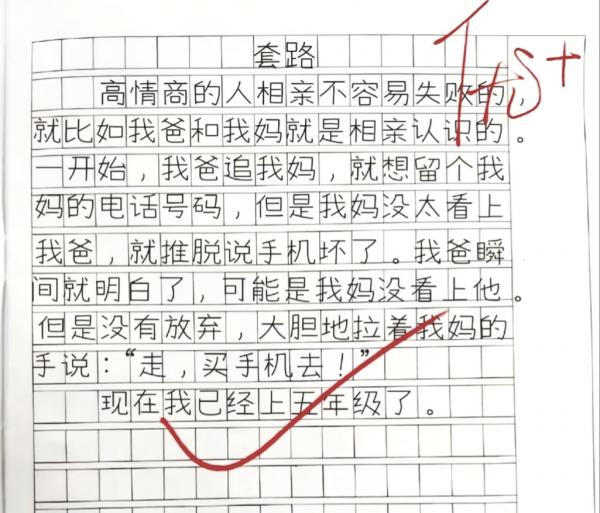 套路
高情商的人相亲不容易失败的，
就比如我爸和我妈就是相亲认识的。
一开始，我爸追我妈，就想留个我
妈的电话号码，但是我妈没太看上
我爸，就推脱说手机坏了。我爸瞬
间就明白了，可能是我妈没看上他。
但是没有放弃，大胆地拉着我妈的
手说：“走，买手机去！”
现在我已经上五年级了。